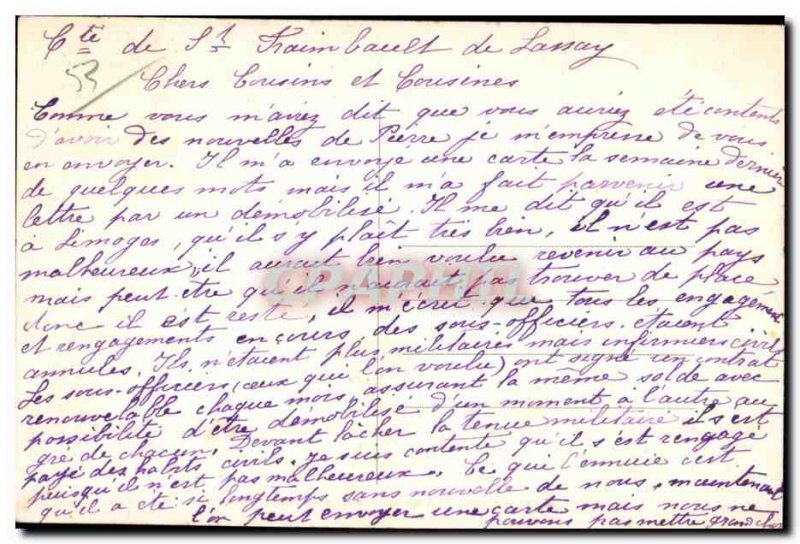 Cte de St Fraimbault de Lassay
53
Chers Cousins et Cousines
Comme vous m'aviez dit que vous auriez été contents
d'avoir des nouvelles de Pierre je m'empresse de vous
en envoyer. Il m'a envoyé une carte la semaine dernière
de quelques mots mais il m'a fait parvenir une
lettre par un démobilisé. Il me dit qu'il est
à Limoges, qu'il s'y plaît très bien, il n'est pas
malheureux, il aurait bien voulu revenir au pays
mais peut être qu'il n'aurait pas trouver de place
donc il est resté, il m'écrit que tous les engagements
et rengagements en cours des sous-officiers étaient
annulés. Ils n'étaient plus militaires mais infirmiers civils
Les sous-officiers (ceux qui l'on voulu) ont signé un contrat
renouvelable chaque mois assurant la même solde avec
possibilité d'être démobilisé d'un moment à l'autre au
gré de chacun. Devant lâcher la tenue militaire il s'est
payé des habits civils. Je suis contente qu'il s'est rengagé
puisqu'il n'est pas malheureux. Ce qui l'ennuie c'est
qu'il a été si longtemps sans nouvelle de nous, maintenant
l'on peut envoyer une carte mais nous ne
pouvons pas mettre grand chose